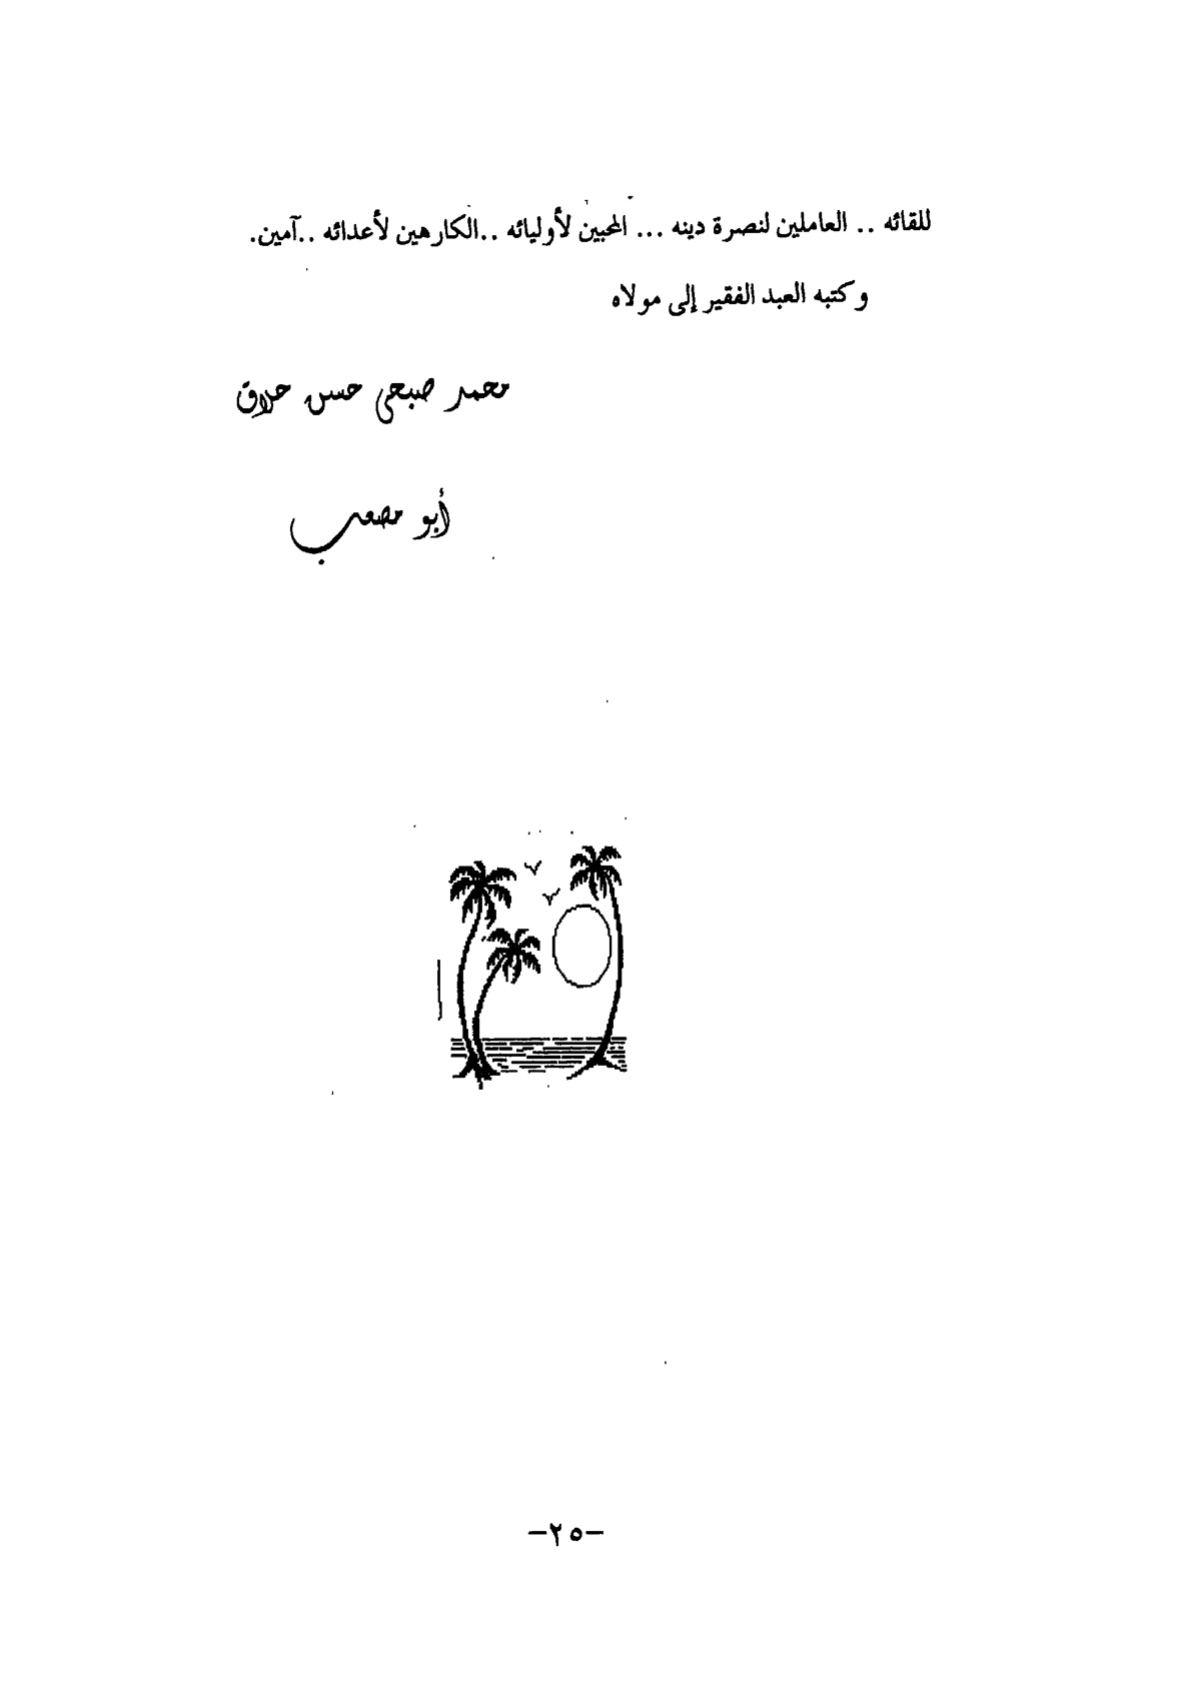 للقائه .. العاملين لنصرة دينه ... المحبين لأوليائه ..الكارهين لأعدائه ..آمين.
وكتبه العبد الفقير إلى مولاه
محمد صبحي حسن حلاق
أبو مصعب
-٢٥-